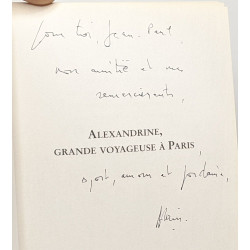 Pour toi, Jean-Paul
mon amitié et me
remerciements,
ALEXANDRINE,
GRANDE VOYAGEUSE À PARIS
, amour et
Alain.